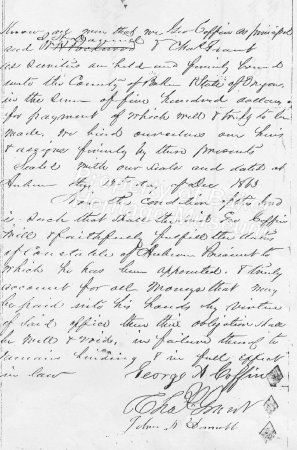 Know all men that we Geo Coffin as principal
and & Chas Grant
as Sureties are held and firmly bound
unto the County of Baker State of Oregon
in the Sum of five hundred dollars
for payment of which well & truly to be
made, we bind ourselves our heirs
& assigns firmly by these presents
Sealed with our Seals and dated at
Auburn Ogn day of Dec 1863
Now the Condition of this bond
is Such that if Geo Coffin
will & faithfully fulfill the duties
of Constable of Auburn Precinct to
which he has been appointed & truly
account for all Moneys that may
be paid into his hands by virtue
of Said office then this obligation shall
be null & void, in failure thereof to
remain binding & in full effect
in law George H Coffin
Chas
John